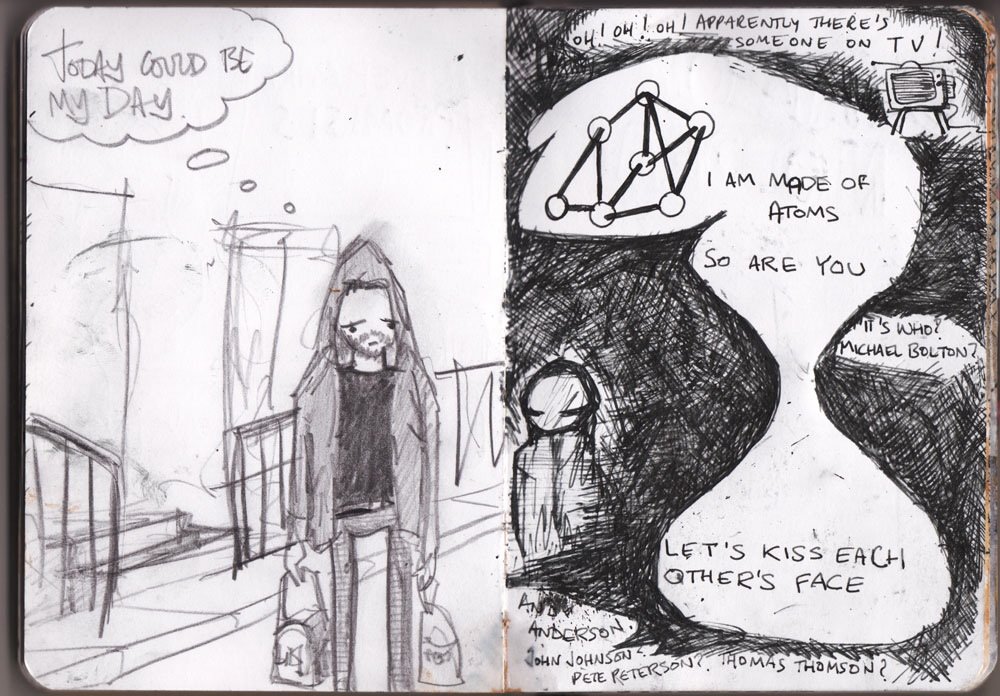 TODAY COULD BE
MY DAY.
OH! OH! OH! APPARENTLY THERE'S
SOMEONE ON TV!
I AM MADE OF
ATOMS
SO ARE YOU
IT'S WHO?
MICHAEL BOLTON?
LET'S KISS EACH
OTHER'S FACE
ANDY
ANDERSON?
JOHN JOHNSON?
PETE PETERSON? THOMAS THOMSON?